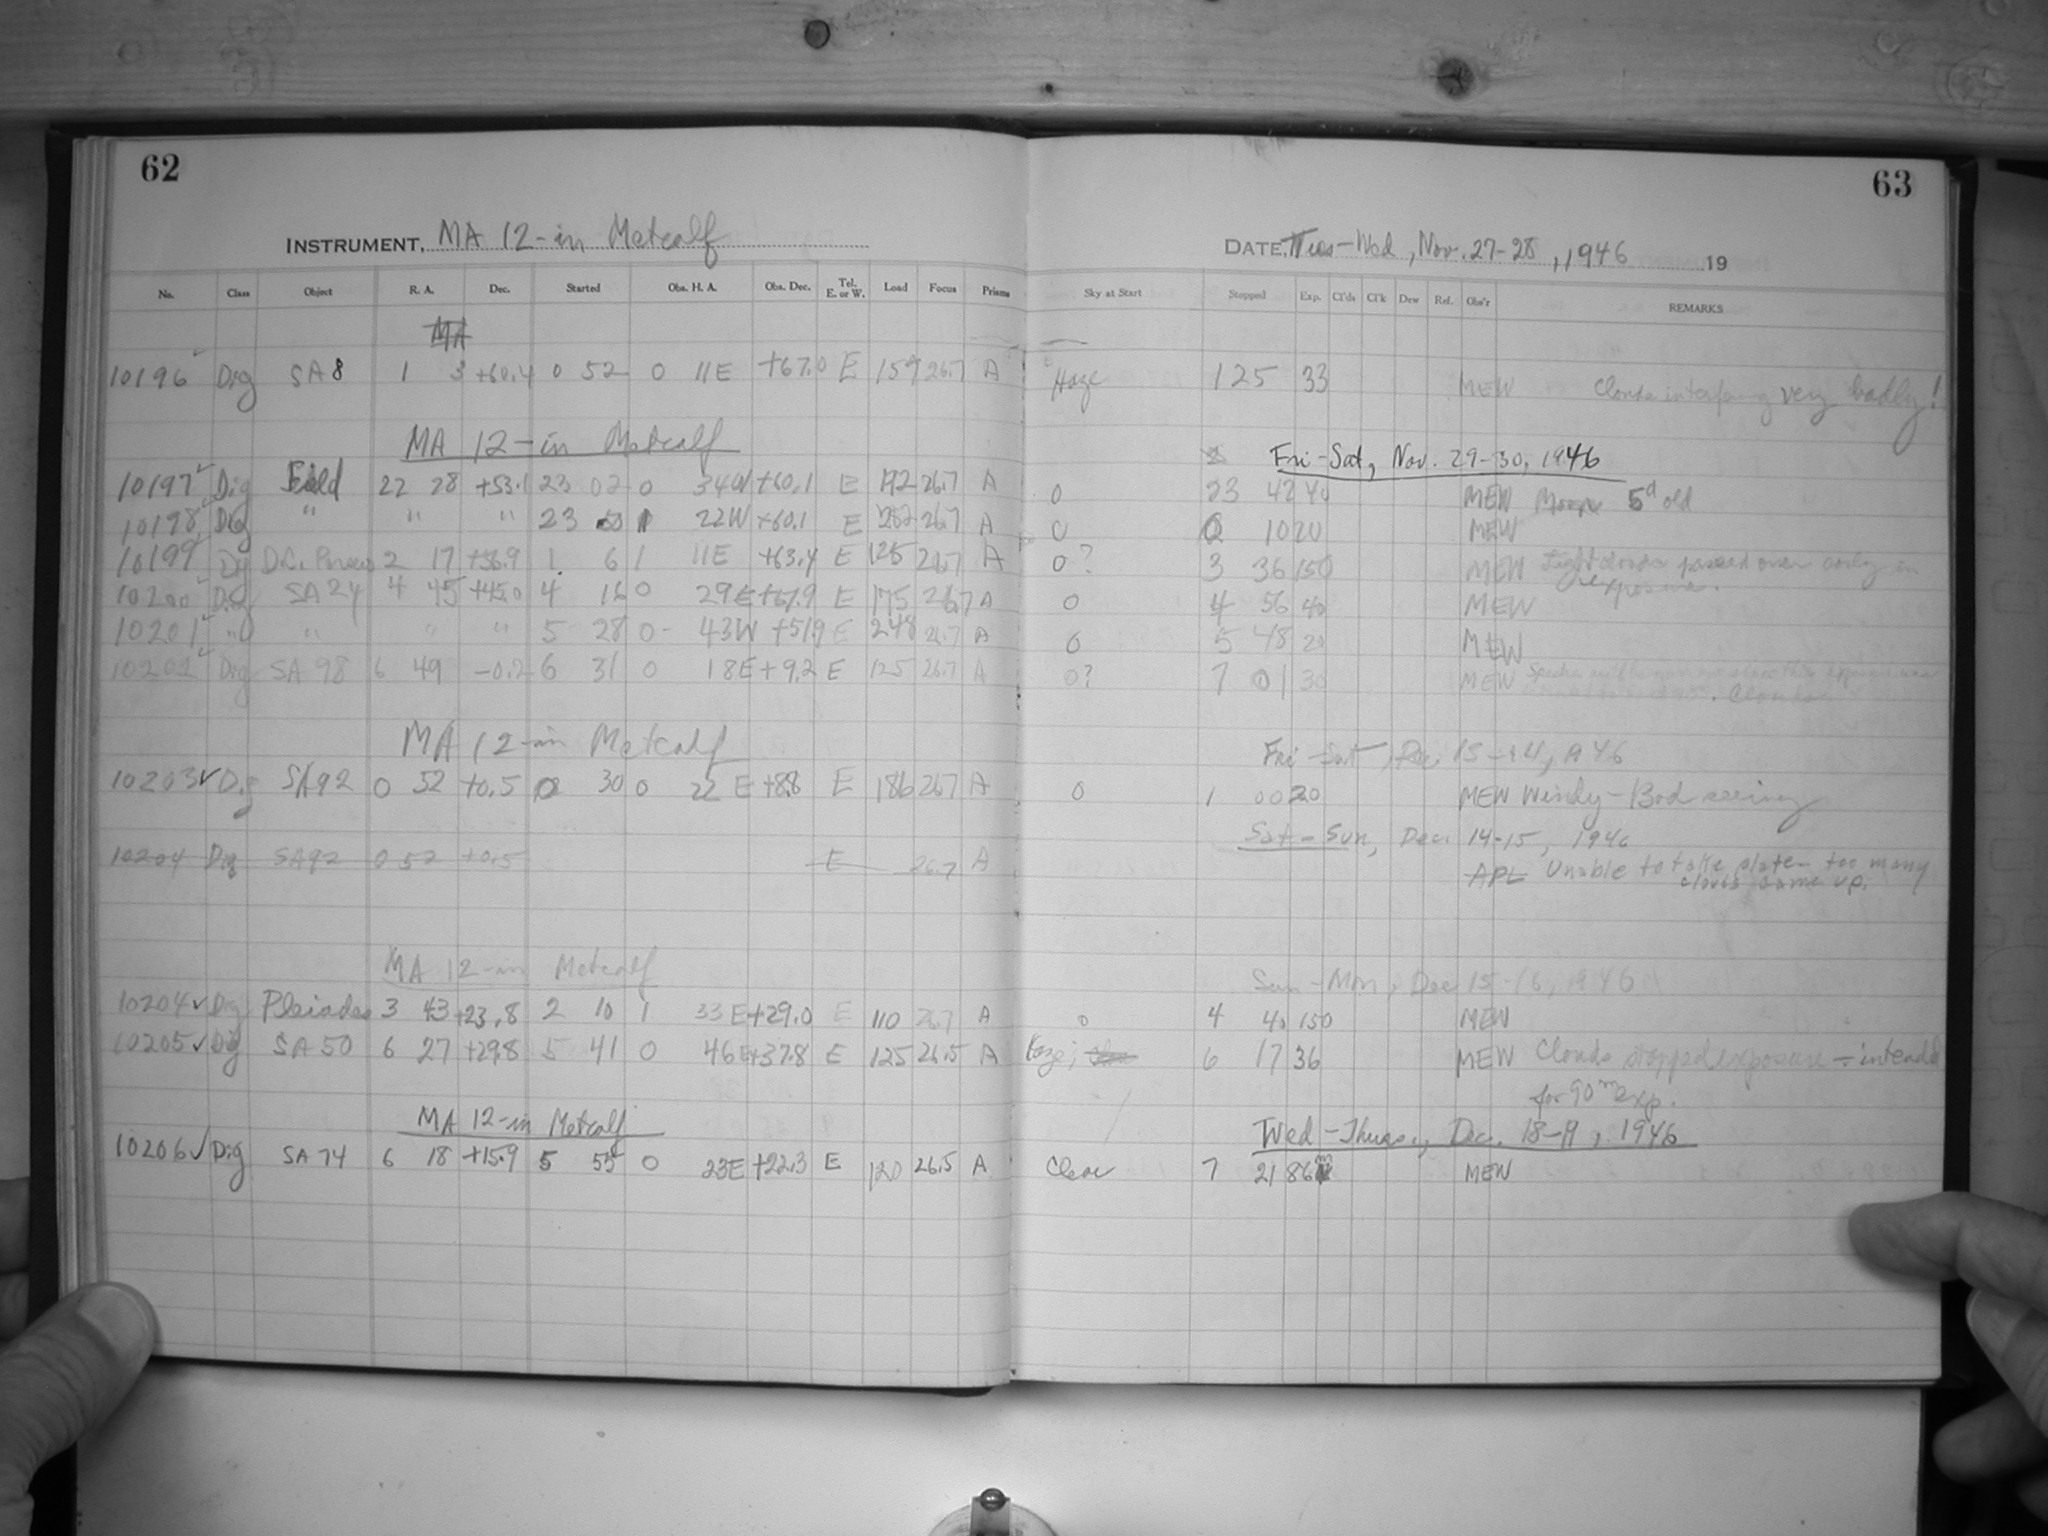 62
INSTRUMENT, MA 12-in Metcalf
No. Class Object R. A. Dec. Started Obs. H. A. Obs. Dec. Tel. E. or W. Load Focus Prisms
MA
10196 Dig SA 8 1 3 +60.4 0 52 0 11E +67.0 E 159 26.7 A
MA 12-in Metcalf
10197 Dig Field 22 28 +53.1 23 02 0 34W +60.1 E 192 26.7 A
10198 Dig " " " 23 50 1 22W +60.1 E 252 26.7 A
10199 Dig D.C. 2 17 +56.9 1 6 1 11E +63.4 E 125 26.7 A
10200 Dig SA 24 4 45 +45.0 4 16 0 29E +67.9 E 175 26.7 A
10201 " " " " 5 28 0 43W +51.9 E 248 26.7 A
10202 Dig SA 98 6 49 -0.2 6 31 0 18E +9.2 E 125 26.7 A
MA 12-in Metcalf
10203 Dig SA 92 0 52 +0.5 0 30 0 22 E +8.8 E 186 26.7 A
10204 Dig SA 92 0 52 +0.5 E 26.7 A
MA 12-in Metcalf
10204 Dig Pleiades 3 43 +23.8 2 10 1 33 E +29.0 E 110 26.7 A
10205 Dig SA 50 6 27 +29.8 5 41 0 46E +37.8 E 125 26.5 A
MA 12-in Metcalf
10206 Dig SA 74 6 18 +15.9 5 55 0 23E +22.3 E 120 26.5 A
63
DATE, Tues-Wed, Nov. 27-28, 1946 19
Sky at Start Stopped Exp. Cl'ds Cl'k Dew Ref. Obs'r REMARKS
Haze 1 25 33 MEW Clouds interfering very badly!
Fri-Sat, Nov. 29-30, 1946
0 23 42 40 MEW Moon 5d old
0 0 10 20 MEW
0? 3 36 150 MEW Light clouds passed over early in
exposure.
0 4 56 40 MEW
0 5 48 20 MEW
0? 7 01 30 MEW
. Clouds
Fri-Sat, Dec 13-14, 1946
0 1 00 20 MEW Windy - Bad seeing
Sat-Sun, Dec. 14-15, 1946
APL Unable to take plate - too many
clouds came up.
Sun-Mon, Dec 15-16, 1946
0 4 40 150 MEW
Haze; 6 17 36 MEW Clouds stopped exposure - intended
for 90m exp.
Wed-Thurs., Dec. 18-19, 1946
Clear 7 21 86m MEW